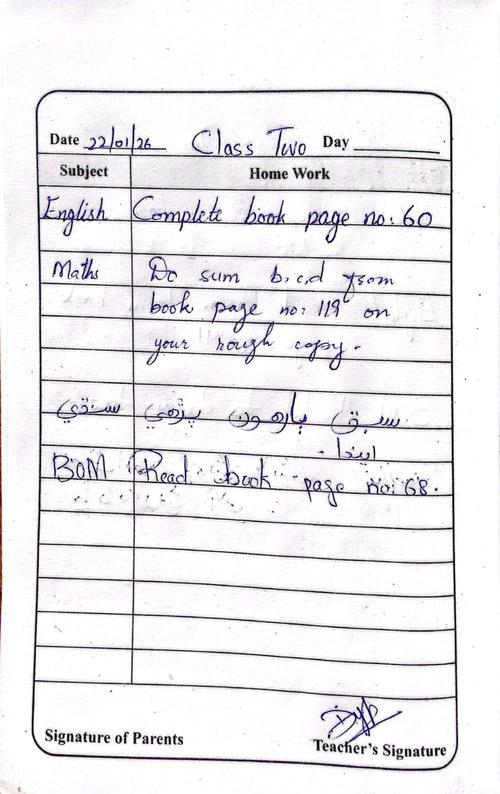 Date 22/01/26 Class Two Day
Subject Home Work
English Complete book page no: 60
Maths Do sum b,c,d from
book page no: 119 on
your rough copy.
سنڌي سبق پارھون پڙھي
ايندا.
BOM Read book page no: 68.
Signature of Parents
Teacher's Signature